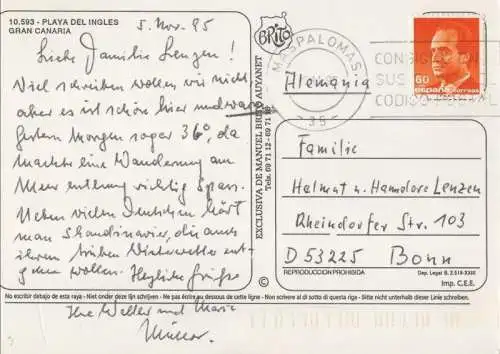 10.593 - PLAYA DEL INGLES
GRAN CANARIA
5. Nov. 95
Liebe Familie Lenzen!
Viel schreiben wollen wir nicht,
aber es ist schön hier und warm
gestern Morgen sogar 36°, da
machte eine Wanderung am
Meer entlang richtig Spass.
Neben vielen Deutschen hört
man Skandinavier, die auch
ihrem trüben Winterwetter ent-
gehen wollen. Herzliche Grüße
Ihre Walter und Maria
BRITO
EXCLUSIVA DE MANUEL BRITO AUYANET
MASPALOMAS
CONSIGNE
SUS
CODIGO POSTAL
60
españa correos
Alemania
Familie
Helmut u. Hannelore Lenzen
Rheindorfer Str. 103
D 53225 Bonn
REPRODUCCION PROHIBIDA
Imp. C.E.E.
No escribir debajo de esta raya - Niet onder deze lijn schrijven - Ne pas écrire au dessous de cette ligne - Non scrivere al di sotto di questa riga - Bitte nicht unterhalb dieser Linie schreiben.